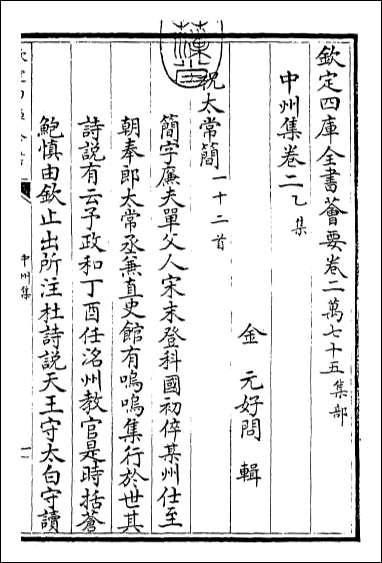 欽定四庫全書薈要卷二萬七十五集部
中州集卷二乙集
金 元好問 輯
祝太常簡一十二首
簡字廉夫單父人宋末登科國初倅某州仕至
朝奉郎太常丞兼直史館有嗚嗚集行於世其
詩說有云予政和丁酉任洺州教官是時括蒼
鮑慎由欽止出所注杜詩說天王守太白守讀
中州集
一